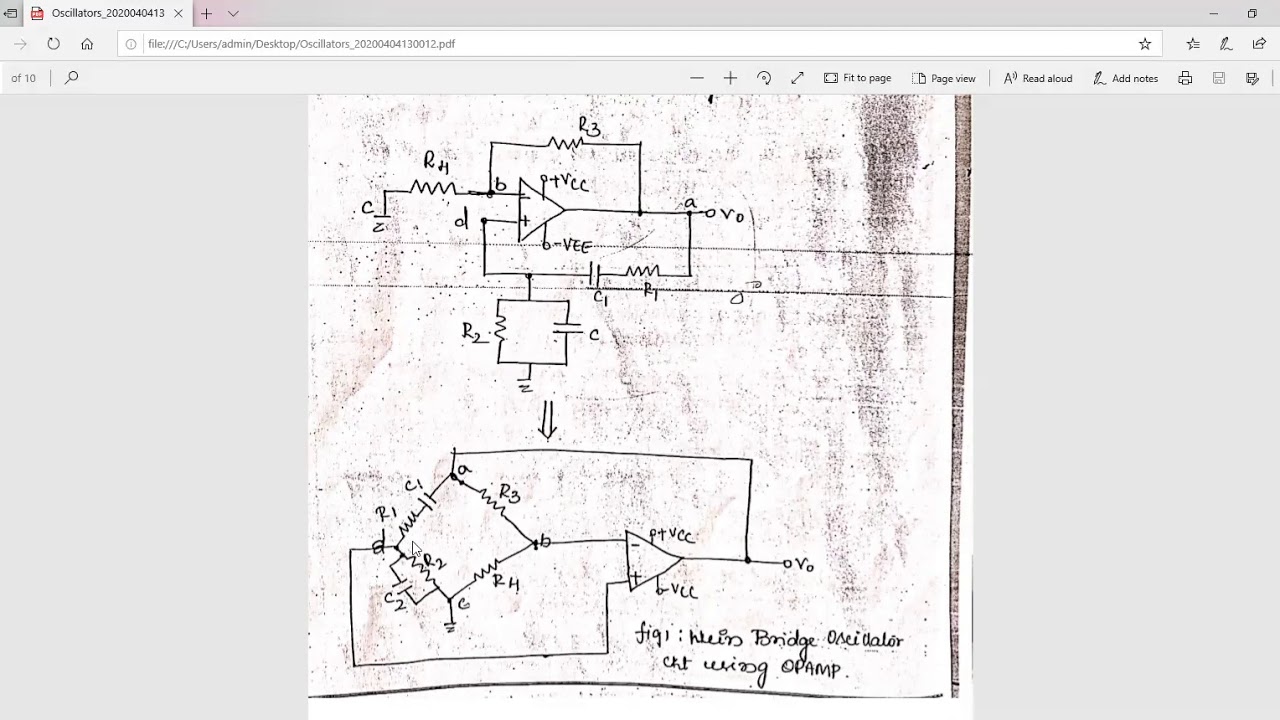 Oscillators_2020040413
file:///C:/Users/admin/Desktop/Oscillators_20200404130012.pdf
of 10
Fit to page
Page view
Read aloud
Add notes
R3
R4
b
+VCC
C
d
a
Vo
-VEE
C1
R1
R2
C
a
C1
R3
R1
d
b
+VCC
R2
R4
Vo
C2
C
-VCC
fig1: Wein Bridge Oscillator
ckt using OPAMP.